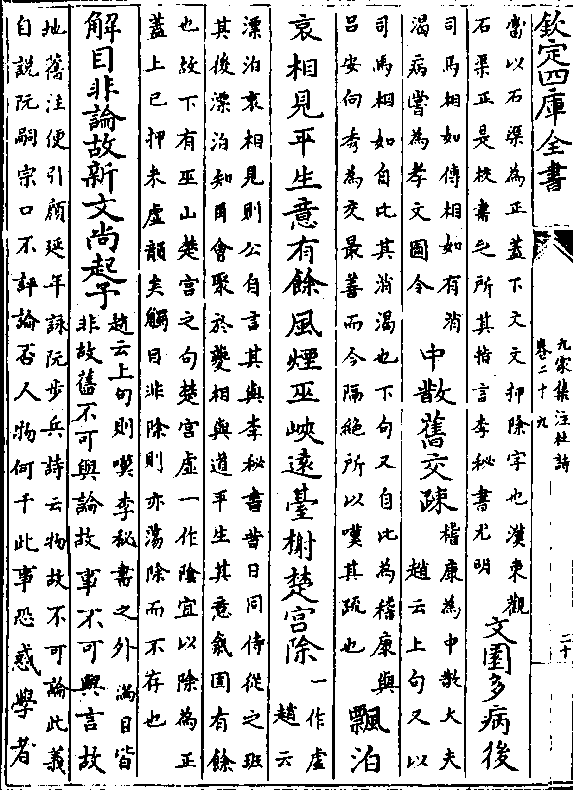 欽定四庫全書
九家集注杜詩
卷二十九
二十
當以石渠為正蓋下文文押除字也漢東觀
石渠正是校書之所其指言李秘書尤明
文園多病後
司馬相如傳相如有消
渴病嘗為孝文園令
中散舊交踈
嵇康為中散大夫
趙云上句又以
司馬相如自比其消渴也下句又自比為嵇康與
呂安向秀為交最善而今隔絶所以嘆其疏也
飄泊
哀相見平生意有餘風煙巫峽遠臺榭楚宮除
一作虛
趙云
漂泊哀相見則公自言其與李秘書昔日同侍從之班
其後漂泊知再會聚於夔相與道平生其意氣固有餘
也故下有巫山楚宮之句楚宮虛一作除宜以除為正
蓋上已押朱虛韻矣觸目非除則亦蕩除而不存也
解目非論故新文尚起予
趙云上句則嘆李秘書之外滿目皆
非故舊不可與論故事不可與言故
地舊注便引顔延年詠阮步兵詩云物故不可論此義
自說阮嗣宗口不評論否人物何干此事恐惑學者